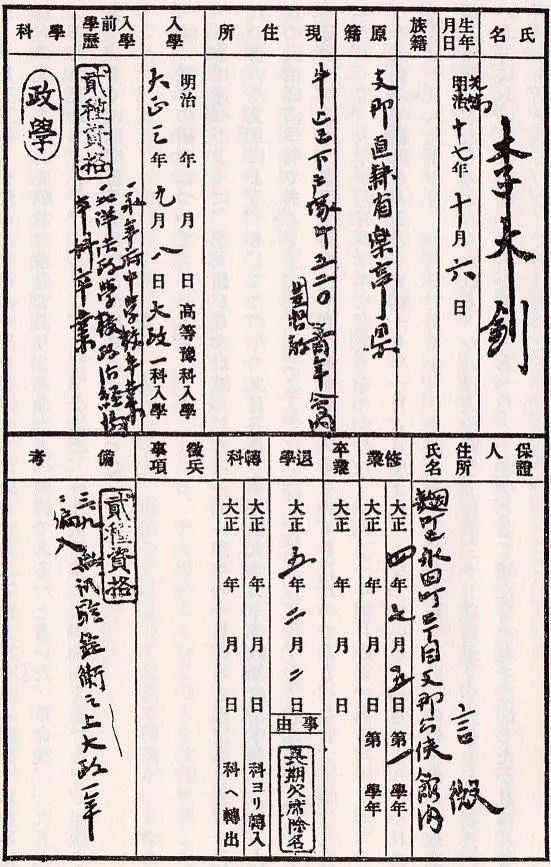 氏名
李大釗
生年月日
光緒
明治 十七年 十月 六日
族籍
原籍
支那直隷省楽亭県
現住所
牛込区下戸塚町五二〇
青年會内
入學
明治 年 月 日 高等豫科入學
大正三年 九月 八日 大政一科入學
入學前學歷
貳種資格
一、永平府中学校卒業
一、北洋法政学校政治経済
本科卒業
學科
政學
保證人
住所
氏名
麹町区永田町二丁目支那公使館内
言微
修業
大正 四年 七月 五日 第一學年
大正 年 月 日 第 學年
卒業
大正 年 月 日
退學
大正 五年 二月 二日
事由
長期欠席除名
轉科
大正 年 月 日 科ヨリ轉入
大正 年 月 日 科ヘ轉出
徵兵事項
備考
貳種資格
三、九、
試驗銓衡之上大政一年
ニ編入